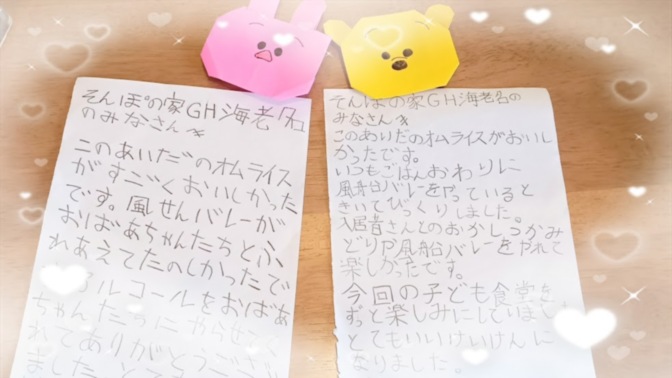 そんぽの家GH海老名
のみなさんへ
このあいだのオムライス
がすごくおいしかった
です。風せんバレーが
おばあちゃんたちとふ
れあえてたのしかったで
ルコールをおばあ
ちゃんたちにやらせ
れてありがとうござい
ました。
そんぽの家GH海老名の
みなさんへ
このあいだのオムライスがおいし
かったです。
いつもごはんおわりに
風船バレーをやっていると
きいてびっくりしました。
入居者さんとのおかしつかみ
どりや風船バレーをやれて
楽しかったです。
今回の子ども食堂を
ずっと楽しみにしていました。
とてもいいけいけんに
なりました。